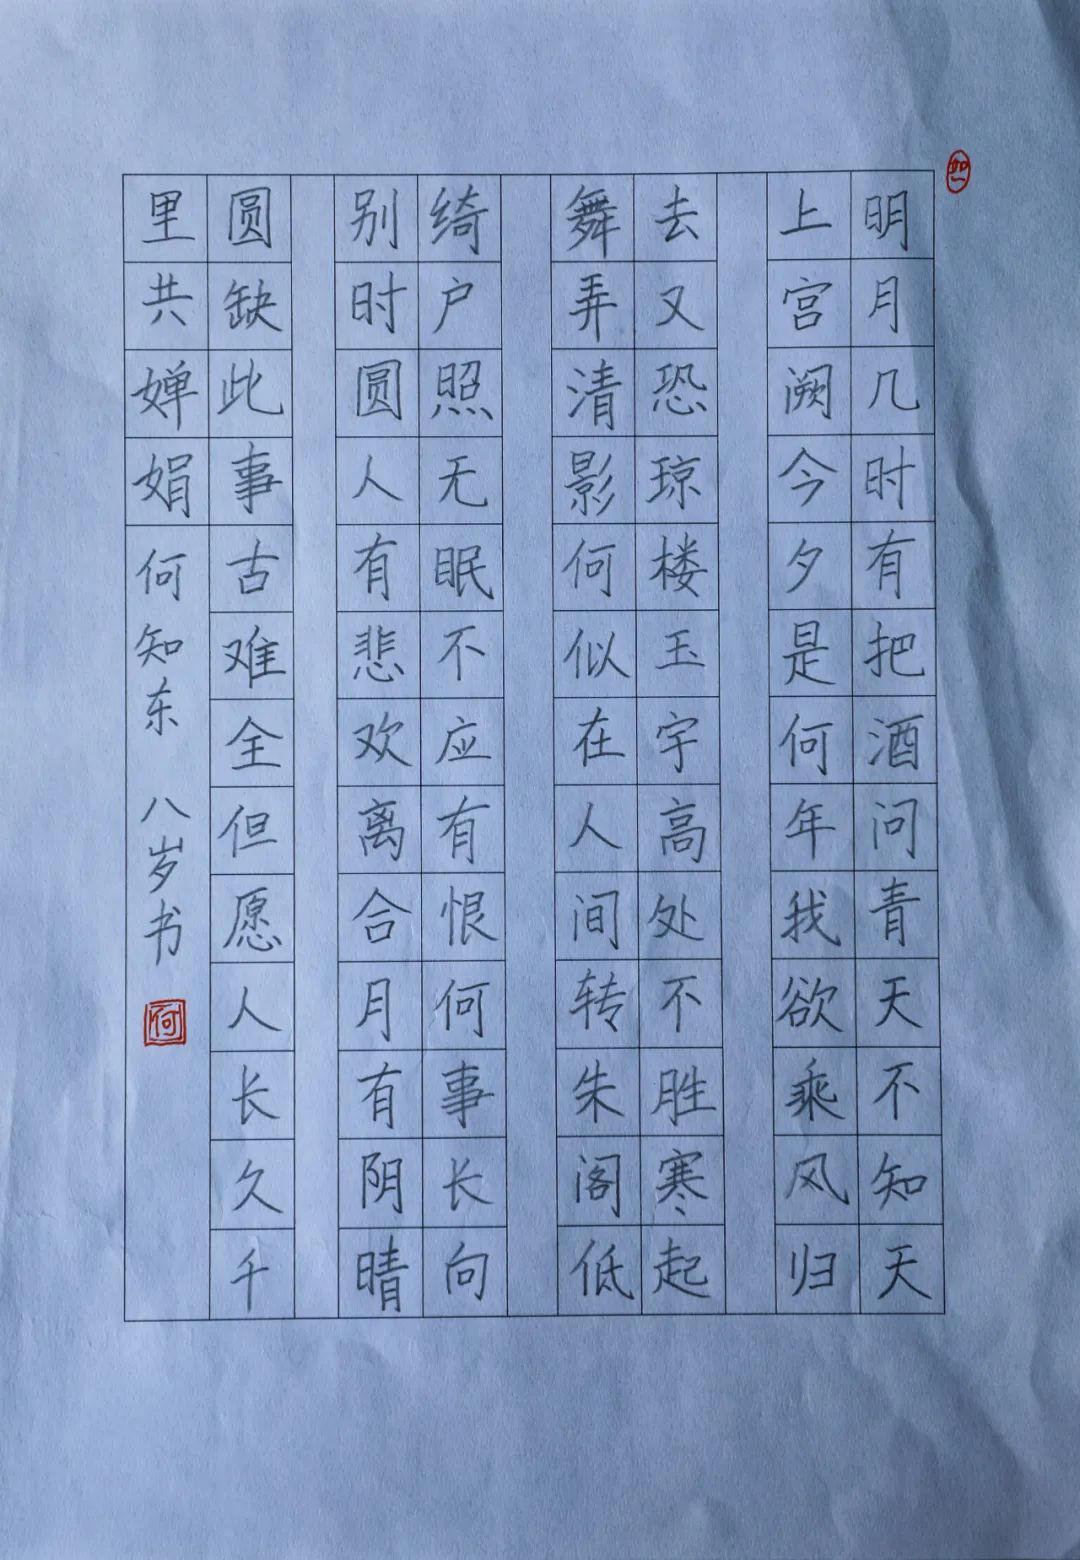 明月几时有把酒问青天不知天
上宫阙今夕是何年我欲乘风归
去又恐琼楼玉宇高处不胜寒起
舞弄清影何似在人间转朱阁低
绮户照无眠不应有恨何事长向
别时圆人有悲欢离合月有阴晴
圆缺此事古难全但愿人长久千
里共婵娟
何知东 八岁书
何